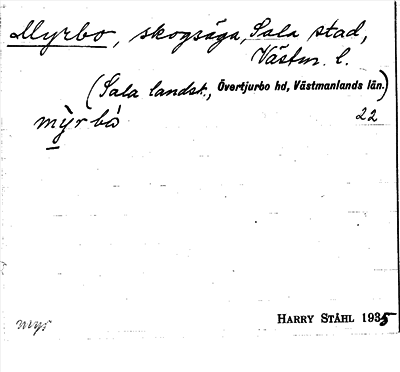 Myrbo, skogsäga, Sala stad,
Västm. l.
(Sala landsk., Övertjurbo hd, Västmanlands län.)
mỳrbò 22
HARRY STÅHL 1935
myr